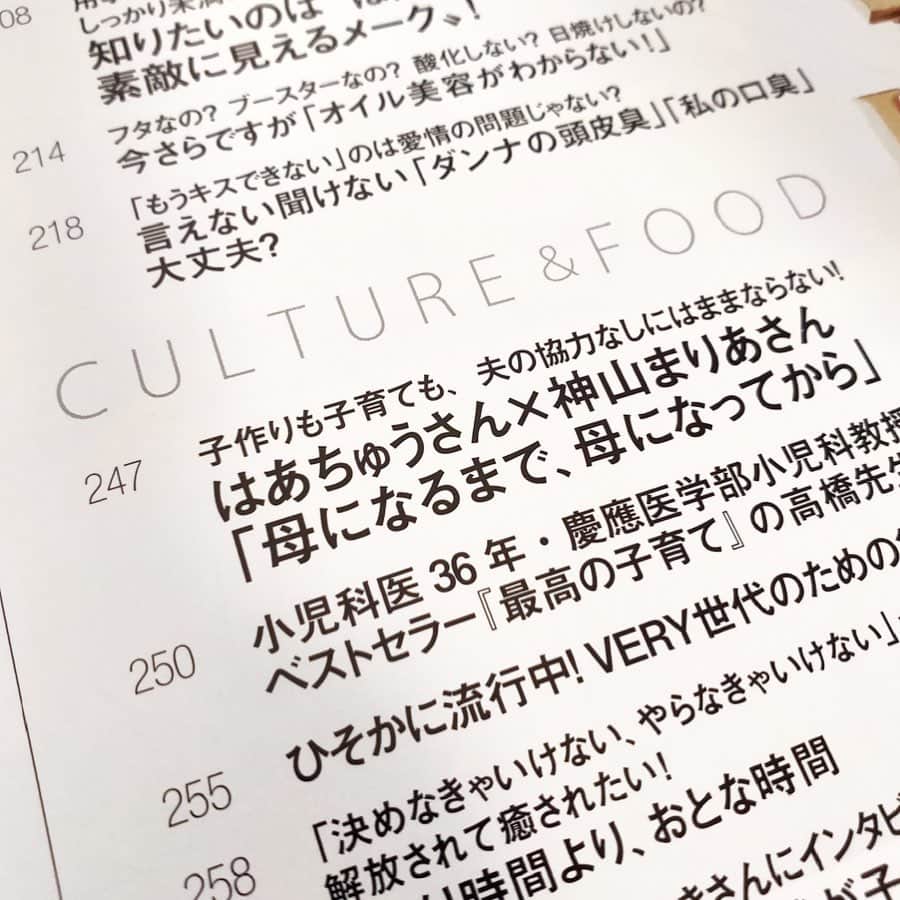 208
しっかり
知りたいのは
素敵に見えるメーク〟!
フタなの? ブースターなの? 酸化しない? 日焼けしないの?
214 今さらですが「オイル美容がわからない!」
「もうキスできない」のは愛情の問題じゃない?
218 言えない聞けない「ダンナの頭皮臭」「私の口臭」
大丈夫?
CULTURE & FOOD
子作りも子育ても、夫の協力なしにはままならない!
247 はあちゅうさん×神山まりあさん
「母になるまで、母になってから」
小児科医36年・慶應医学部小児科教授
250 ベストセラー『最高の子育て』の高橋先生
ひそかに流行中! VERY世代のための
255 「決めなきゃいけない、やらなきゃいけない」
解放されて癒されたい!
258 時間より、おとな時間
さんにインタビ
が子